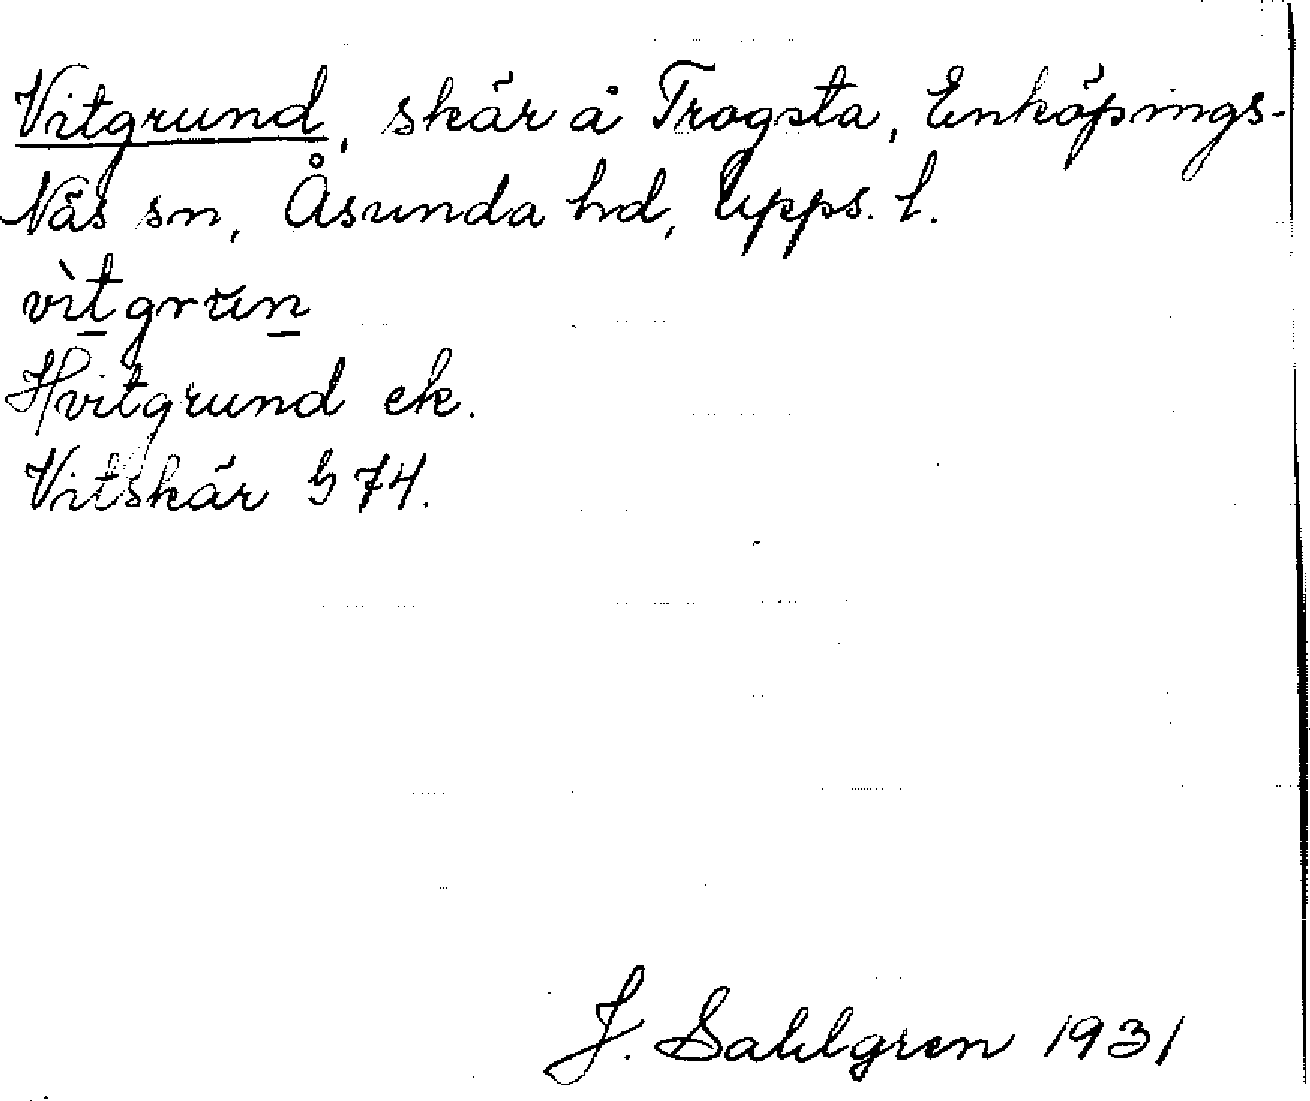 Vitgrund, skär å Trogsta, Enköpings-
Näs sn, Åsunda hd, Upps. l.
vìtgrun
Hvitgrund ek.
Vitskär G 74.
J. Sahlgren 1931